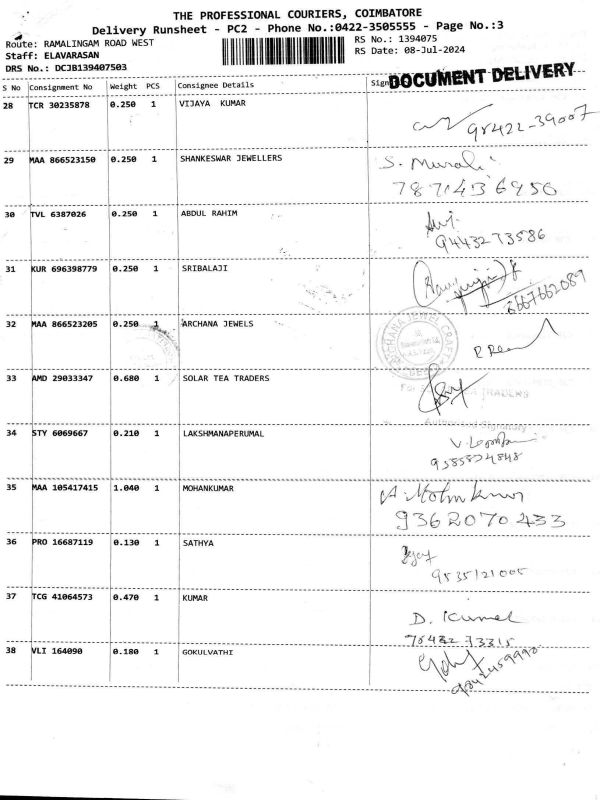 THE PROFESSIONAL COURIERS, COIMBATORE
Delivery Runsheet - PC2 - Phone No.:0422-3505555 - Page No.:3
Route: RAMALINGAM ROAD WEST
RS No.: 1394075
Staff: ELAVARASAN
RS Date: 08-Jul-2024
DRS No.: DCJB139407503
DOCUMENT DELIVERY
S No Consignment No Weight PCS Consignee Details Sign
28 TCR 30235878 0.250 1 VIJAYA KUMAR
98422-39007
29 MAA 866523150 0.250 1 SHANKESWAR JEWELLERS
S. Murali
7871436950
30 TVL 6387026 0.250 1 ABDUL RAHIM
9443273586
31 KUR 696398779 0.250 1 SRIBALAJI
32 MAA 866523205 0.250 1 ARCHANA JEWELS
ARCHANA JEWEL CRAFT
33 AMD 29033347 0.680 1 SOLAR TEA TRADERS
For TRADERS
Authorised Signatory
34 STY 6069667 0.210 1 LAKSHMANAPERUMAL
35 MAA 105417415 1.040 1 MOHANKUMAR
A. Mohnkumar
9362070433
36 PRO 16687119 0.130 1 SATHYA
9535121005
37 TCG 41064573 0.470 1 KUMAR
D. Kumar
78432 73315
38 VLI 164090 0.180 1 GOKULVATHI